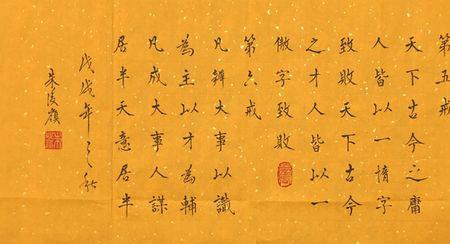 第五戒
天下古今之庸
人皆以一惰字
致敗天下古今
之才人皆以一
傲字致敗
第六戒
凡辦大事以識
為主以才為輔
凡成大事人謀
居半天意居半
戊戌年之秋
朱嶺